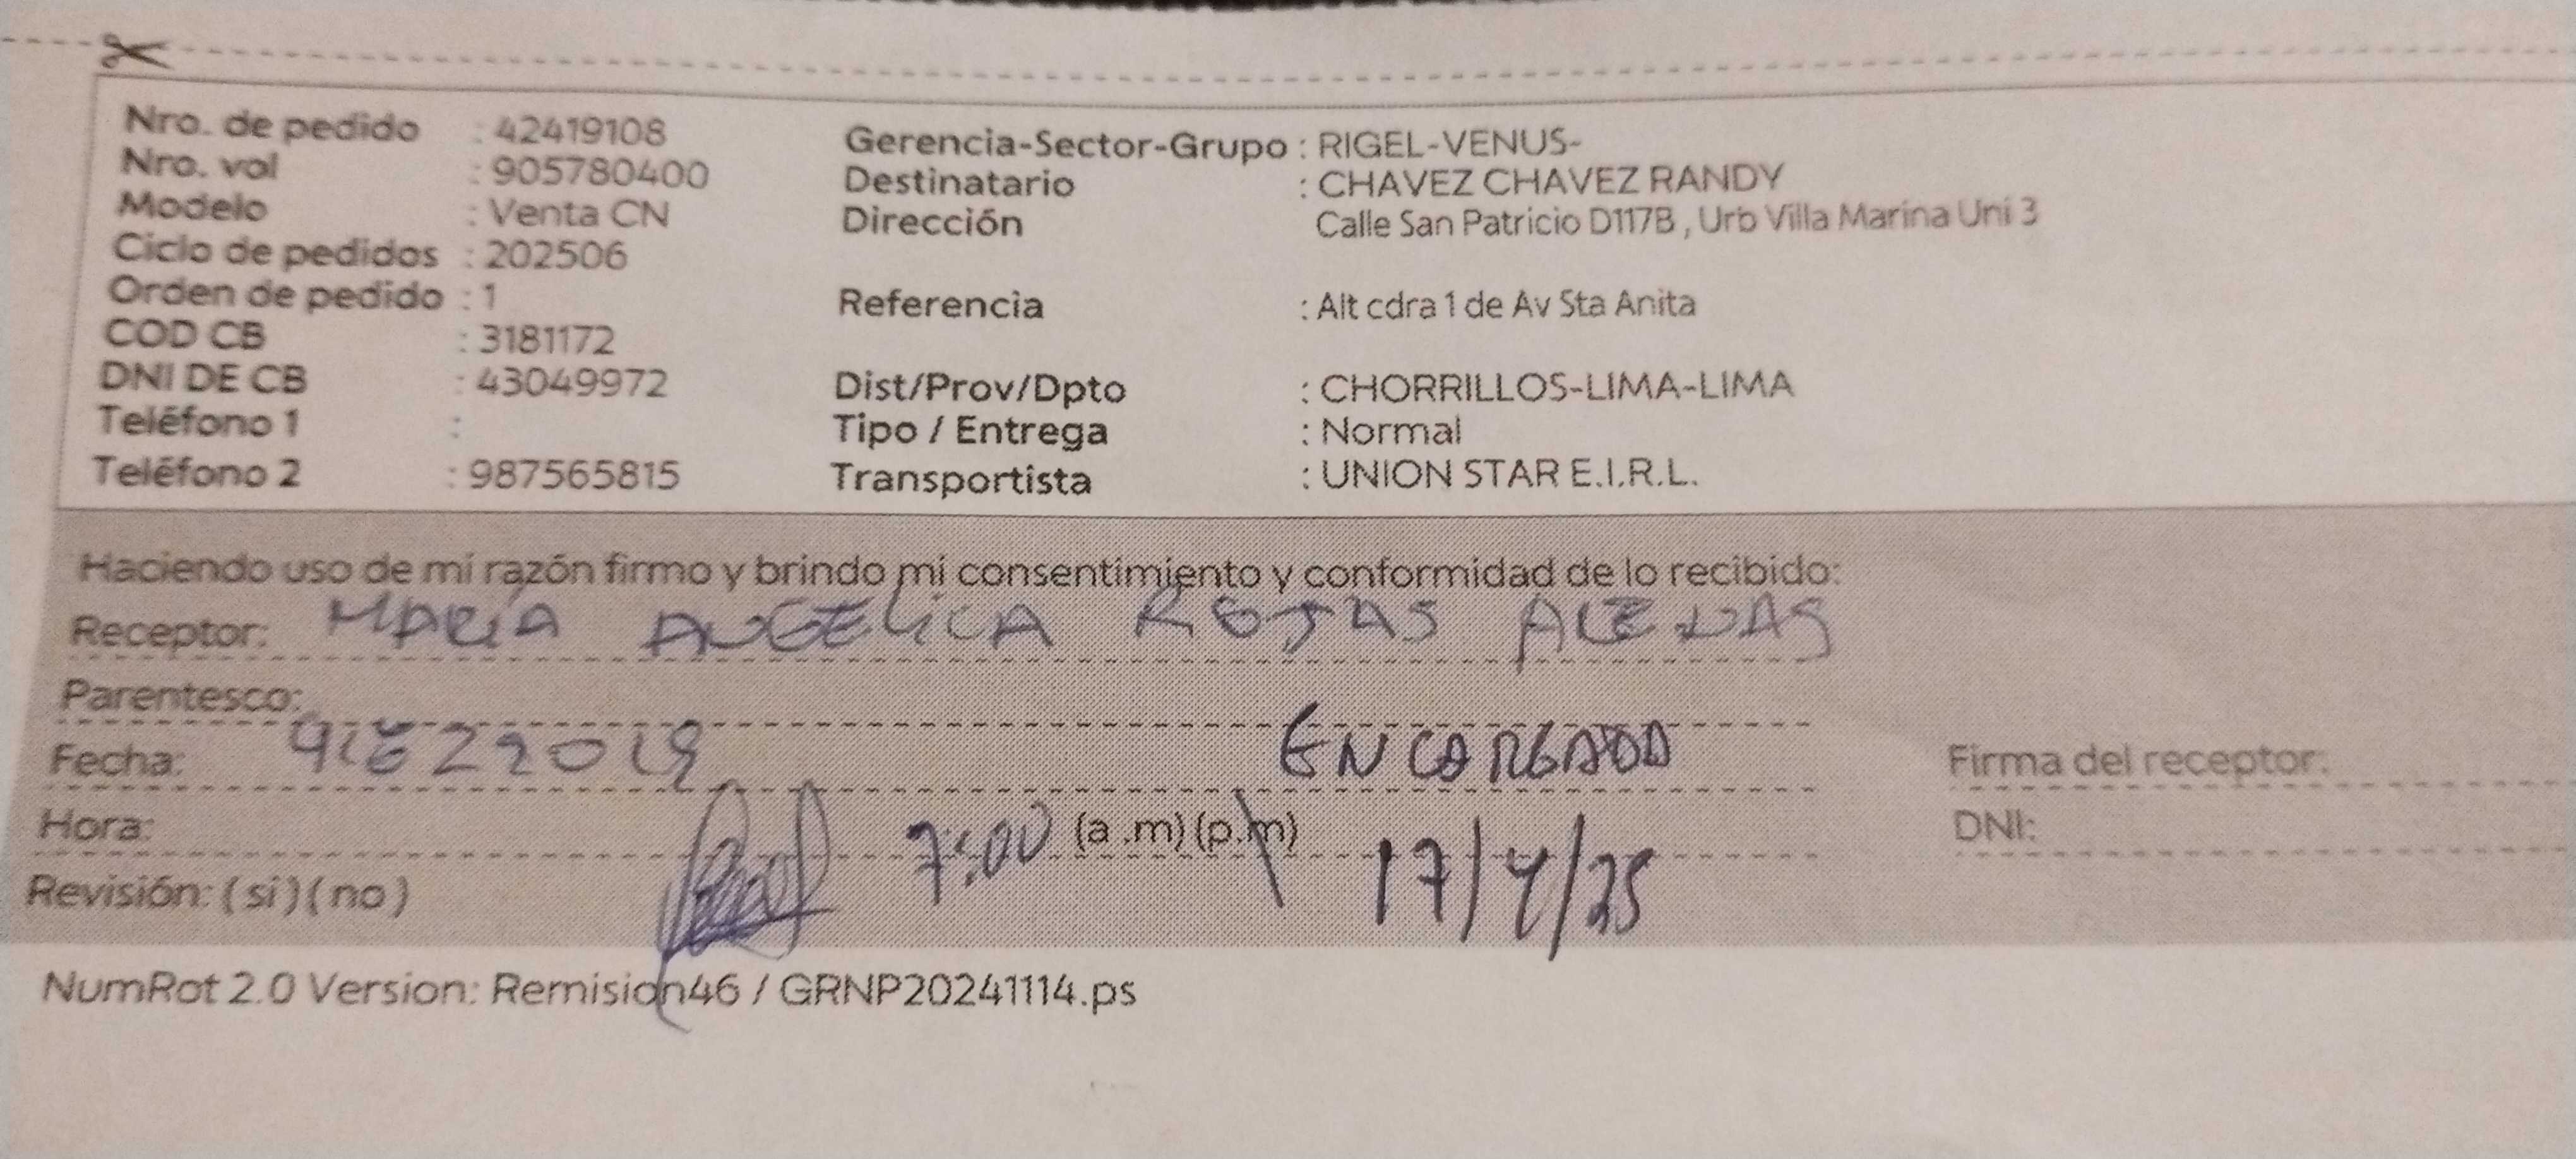 Nro. de pedido : 42419108
Nro. vol : 905780400
Modelo : Venta CN
Ciclo de pedidos : 202506
Orden de pedido : 1
COD CB : 3181172
DNI DE CB : 43049972
Teléfono 1 :
Teléfono 2 : 987565815
Gerencia-Sector-Grupo : RIGEL-VENUS-
Destinatario : CHAVEZ CHAVEZ RANDY
Dirección Calle San Patricio D117B , Urb Villa Marina Uni 3
Referencia : Alt cdra 1 de Av Sta Anita
Dist/Prov/Dpto : CHORRILLOS-LIMA-LIMA
Tipo / Entrega : Normal
Transportista : UNION STAR E.I.R.L.
Haciendo uso de mi razón firmo y brindo mi consentimiento y conformidad de lo recibido:
Receptor: MARÍA ANGELICA ROJAS
Parentesco:
ENCARGADA
Fecha:
Firma del receptor:
Hora: 7:00 (a .m) (p.m) 17/4/25
DNI:
Revisión: ( si ) ( no )
NumRot 2.0 Version: Remision46 / GRNP20241114.ps